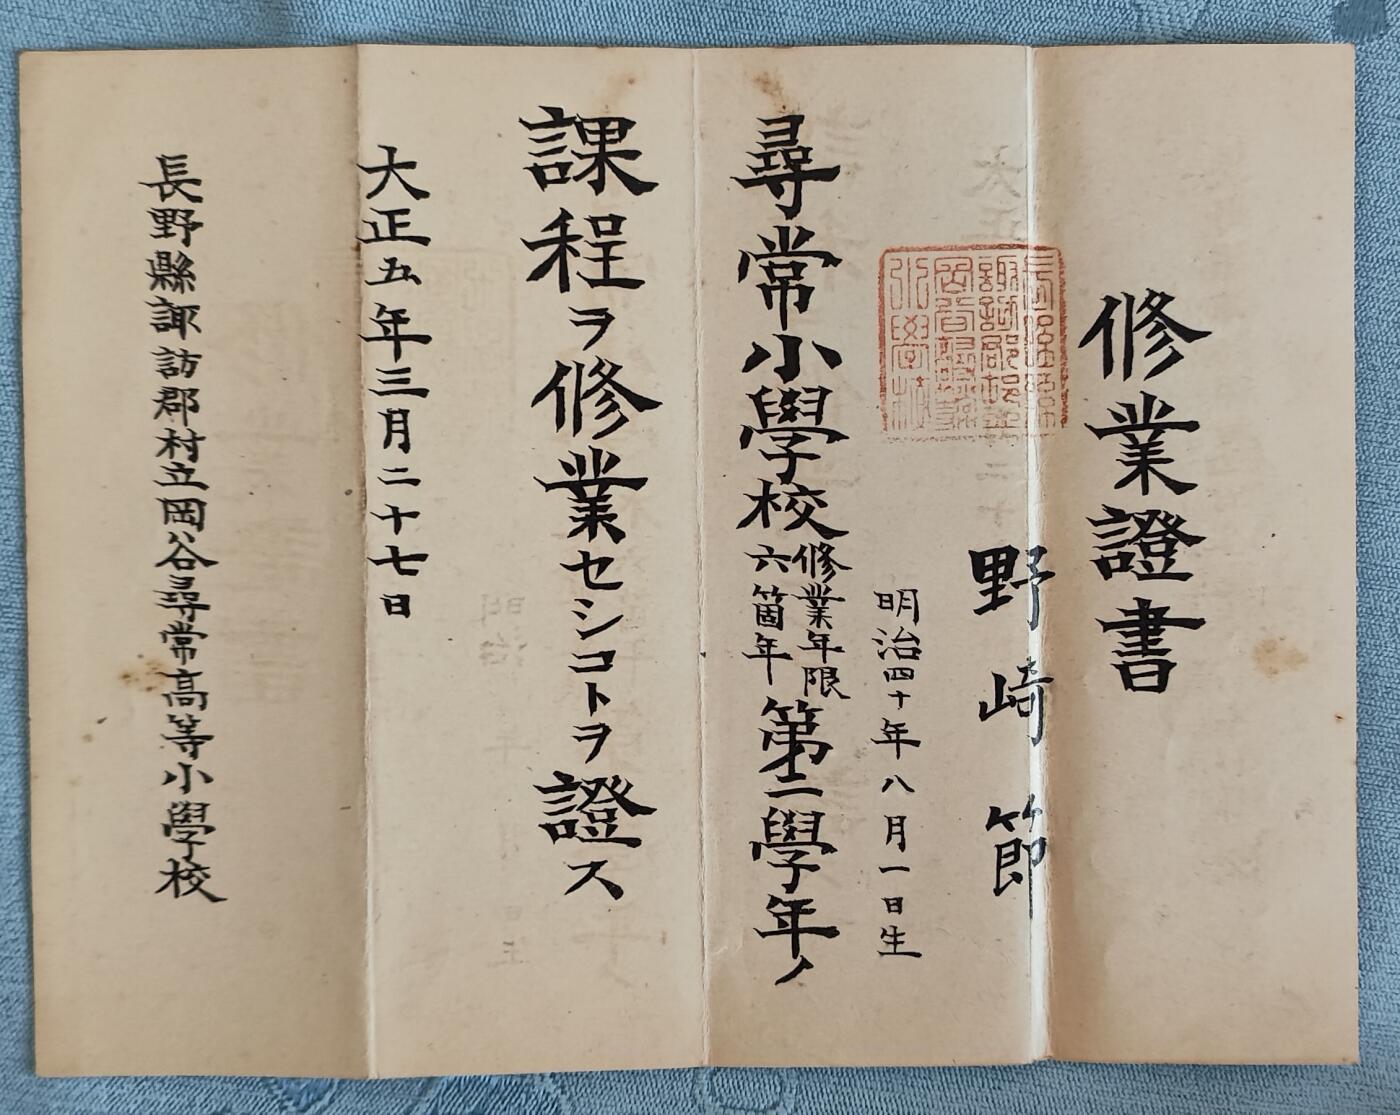 修業證書
野崎節
明治四十年八月一日生
尋常小學校修業年限六箇年第二學年ノ
課程ヲ修業セシコトヲ證ス
大正五年三月二十七日
長野縣諏訪郡村立岡谷尋常高等小學校